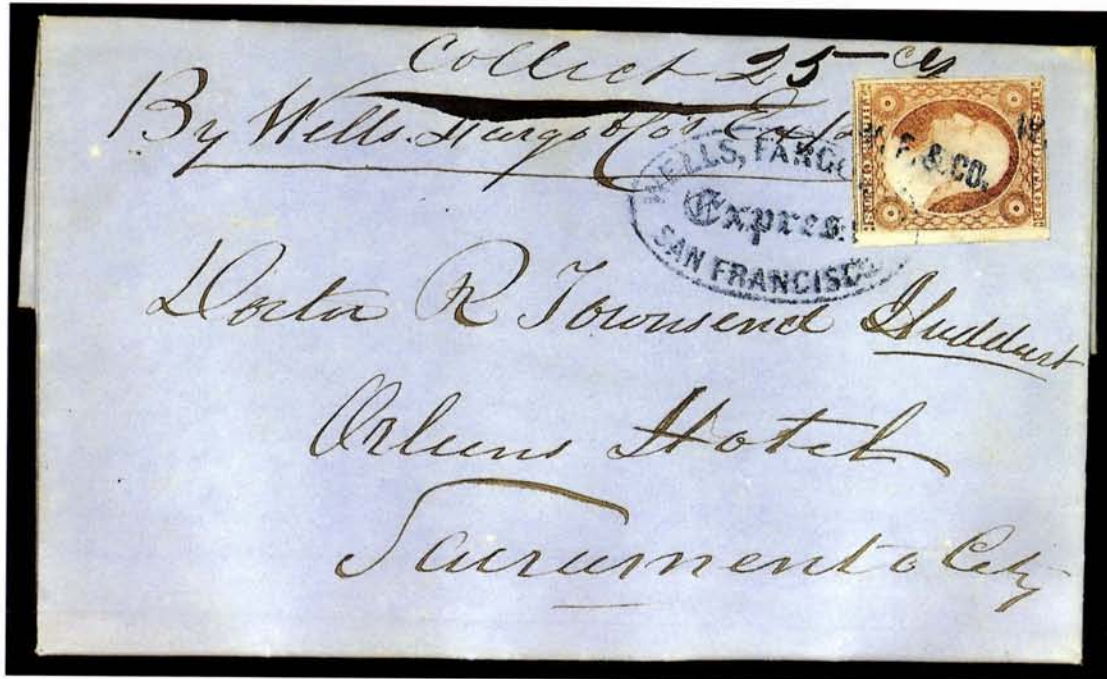 Collect 25 cts
By Wells Fargo & Co's
WELLS, FARGO
Express
SAN FRANCISCO
F. & CO.
Doctor R Townsend Huddart
Orleans Hotel
Sacramento City